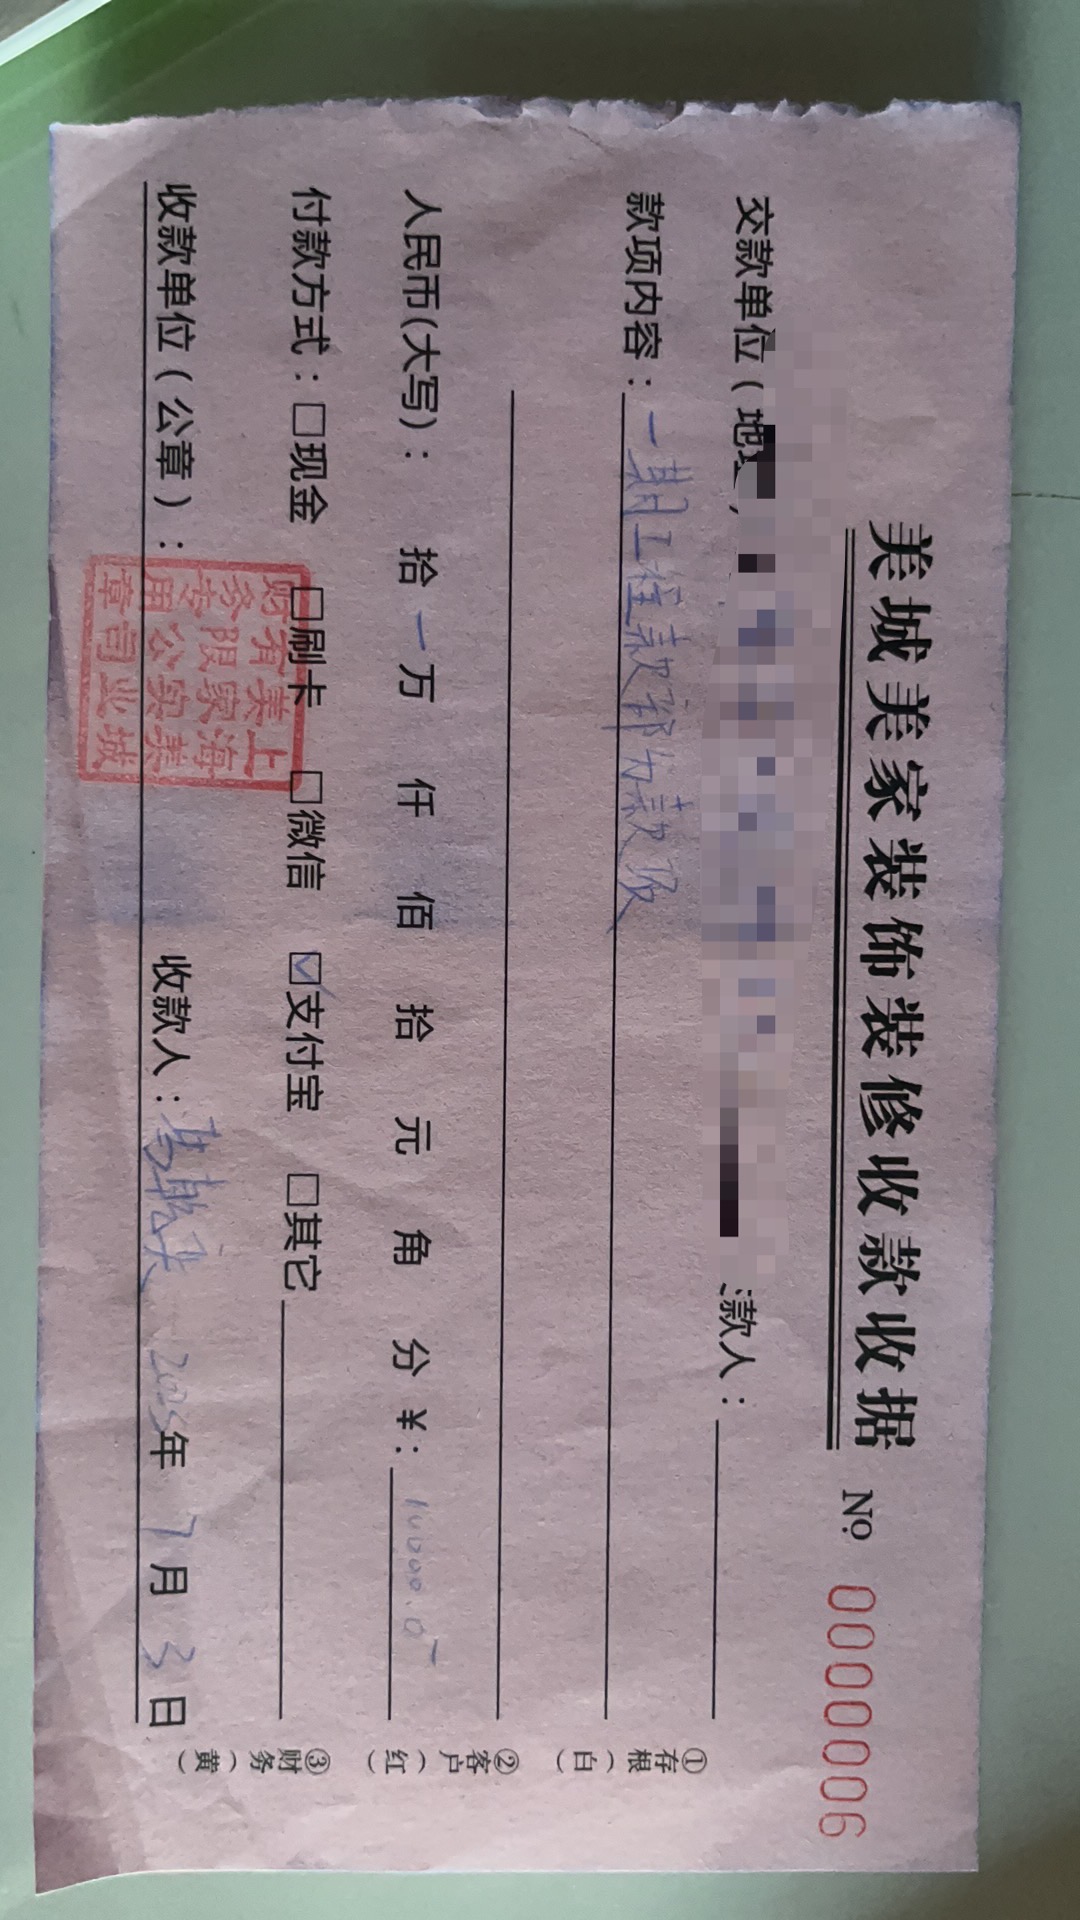 美城美家装饰装修收款收据 № 0000006
交款单位(地 款人:
款项内容: 一期工程款部份款项
人民币(大写): 拾 一 万 仟 佰 拾 元 角 分 ¥: 10000.0
付款方式: □现金 □刷卡 □微信 ☑支付宝 □其它
收款单位(公章): 收款人: 2025年 7月 3日
上海美城
美家实业
有限公司
财务专用章
①存根(白)
②客户(红)
③财务(黄)